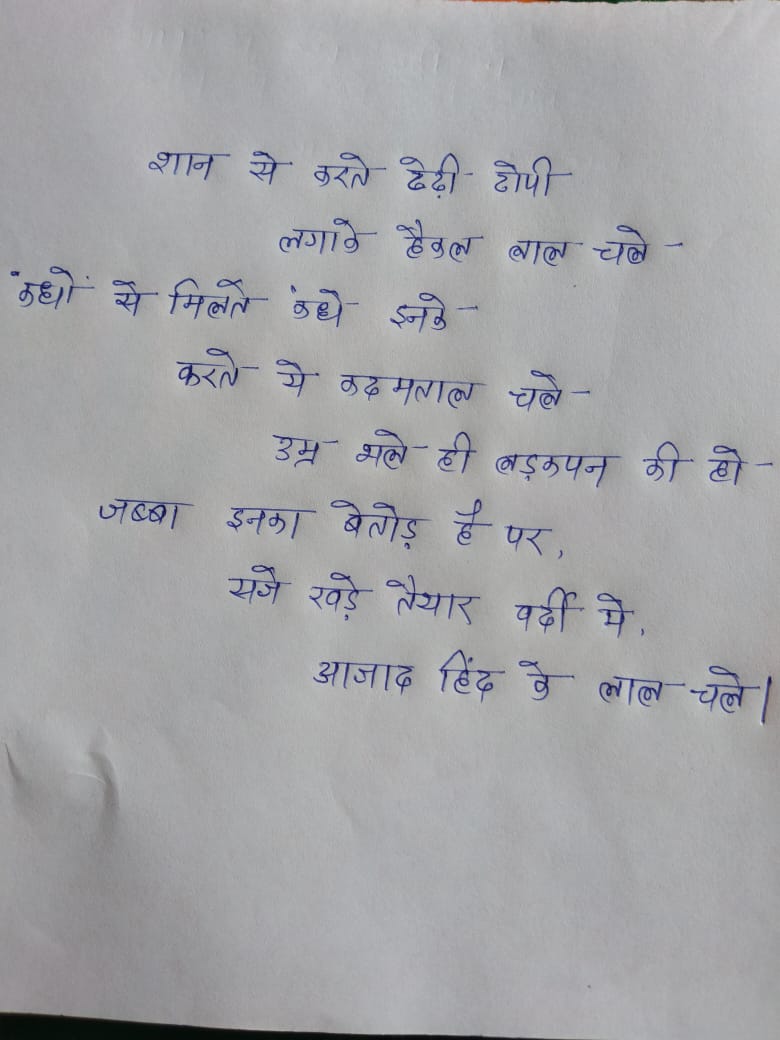 शान से करते टेढ़ी टोपी
लगाके हैकल लाल चले
कंधों से मिलते कंधे इनके
करते ये कदमताल चले
उम्र भले ही लड़कपन की हो
जब्बा इनका बेतोड़ है पर,
सजे खड़े तैयार वर्दी मे,
आजाद हिंद के लाल चले।